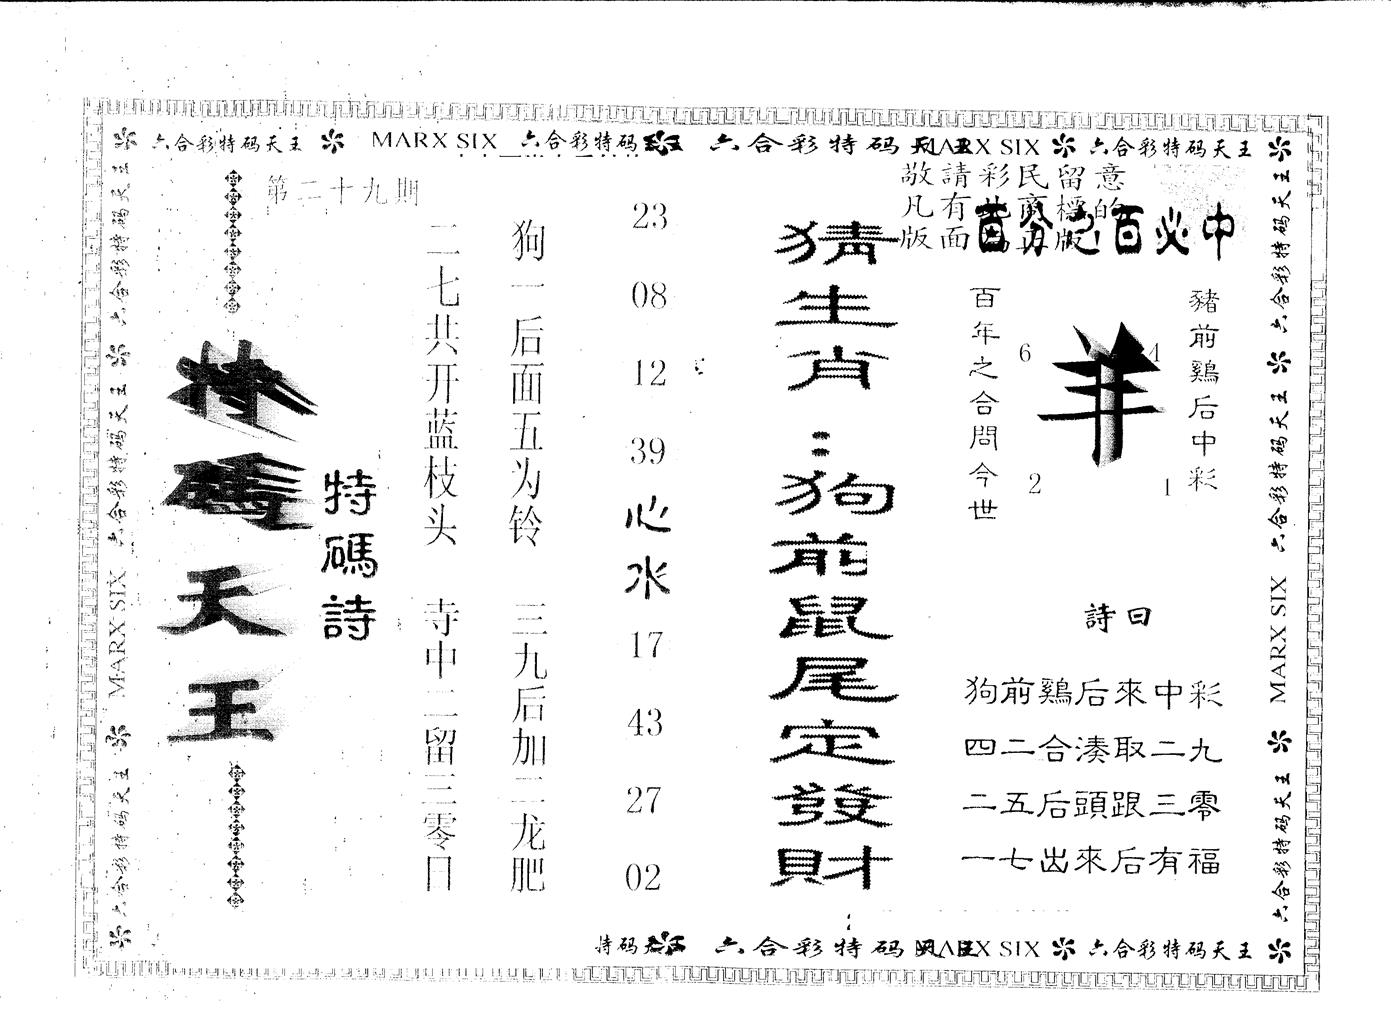 六合彩特码天王 MARX SIX 六合彩特码天王 六合彩特码天王 MARX SIX 六合彩特码天王
第二十九期
特碼天王
特碼詩
二七共开蓝枝头 寺中二留三零日
狗一后面五为铃 三九后加二龙肥
23
08
12
39
心水
17
43
27
02
猜生肖:狗前鼠尾定發財
敬請彩民留意
凡有此商標的
版面為正版
百分之百必中
百年之合問今世
6
羊
4
2
1
豬前鷄后中彩
詩曰
狗前鷄后來中彩
四二合湊取二九
二五后頭跟三零
一七出來后有福
六合彩特码天王 六合彩特码天王 六合彩特码天王 MARX SIX 六合彩特码天王
六合彩特码天王 六合彩特码天王 六合彩特码天王 MARX SIX 六合彩特码天王
特码天王 六合彩特码天王 MARX SIX 六合彩特码天王